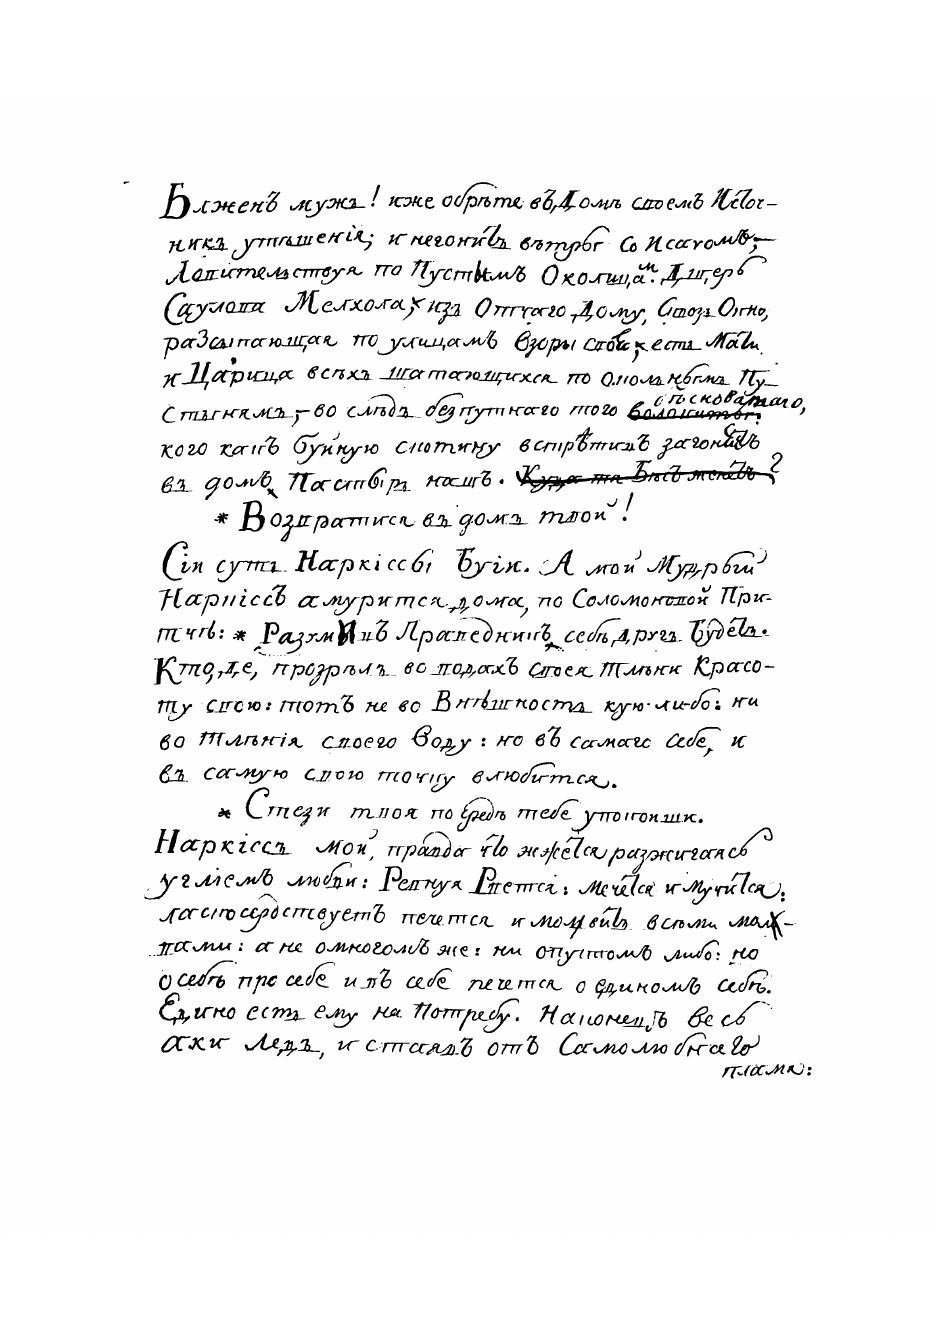 Блжен мужъ! иже обрѣте въ Домѣ своемъ Источ-
никъ утѣшенія; и не гонитъ вѣтры со Исавомъ,
Ловителствуя по Пустымъ Околицам. Дщерь
Саулова Мелхола, изъ Отчаго Дому, Сквозь Окно,
разсыпающая по улицамъ взоры своя, есть Мати
и Царица всѣхъ шатающихся по околнымъ Пу-
стынямъ, во слѣдъ безпутнаго того волокиты:
бѣсноватаго,
кого какъ буйную скотину встрѣтивъ загонитъ
въ домъ Пастырь нашъ. Куда тя Бѣсъ женетъ?
* Возвратися въ домъ твой!
Сіи суть Наркіссы Буіи. А мой Мудрый
Наркіссъ амурится дома, по Соломоновой При-
тчѣ: * Разумивъ Праведникъ, себѣ другъ будетъ.
Кто, де, прозрѣлъ во водахъ своея тлѣни Красо-
ту свою: тотъ не во Внѣшность кую-либо: ни
во тлѣнія своего Воду: но въ самаго себе, и
въ самую свою точку влюбится.
* Стези твоя посредѣ тебе упокоиши.
Наркіссъ мой, правда что жжется, разжигаясь
угліемъ любви: Ревнуя Рвется: мечется и мучится:
ласкосердствуетъ печется и молвитъ всѣми мол-
вами: а не омногомъ же: ни опустомъ либо: но
о себѣ про себе и въ себе печется о единомъ себѣ.
Едино есть ему на Потребу. Наконецъ весь
аки Ледъ, истаявъ отъ Самолюбнаго
пламя: